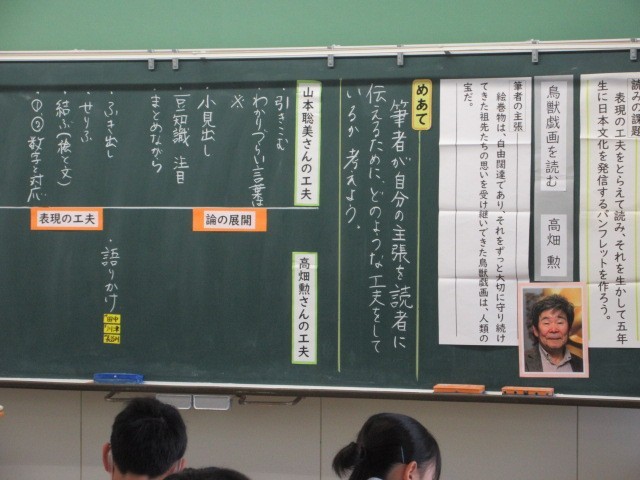 読みの課題
表現の工夫をとらえて読み、それを生かして五年
生に日本文化を発信するパンフレットを作ろう。
鳥獣戯画を読む　高畑 勲
筆者の主張
絵巻物は、自由闊達であり、それをずっと大切に守り続け
てきた祖先たちの思いを受け継いできた鳥獣戯画は、人類の
宝だ。
めあて
筆者が自分の主張を読者に
伝えるために、どのような工夫をして
いるか 考えよう。
山本聡美さんの工夫
・引きこむ
わかりづらい言葉は
※
・小見出し
・豆知識 注目
・まとめながら
・ふき出し
・せりふ
・結ぶ(絵と文)
・①② 数字と対応
論の展開
表現の工夫
高畑勲さんの工夫
・語りかけ
田中